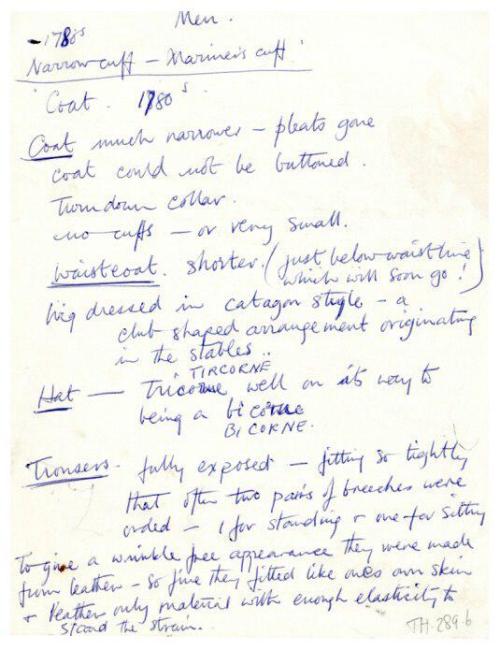 Men.
- 1780s
Narrow cuff - Mariner's cuff'
'Coat. 1780s.
Coat much narrower - pleats gone
coat could not be buttoned.
Turn down collar.
no cuffs - or very small.
Waistcoat. shorter. (just below waistline
which will soon go!)
Wig dressed in catagon style - a
club shaped arrangement originating
in the stables..
TIRCORNE
Hat - Tricorne well on its way to
being a bicorne
BICORNE.
Trousers. fully exposed - fitting so tightly
that often two pairs of breeches were
orded - 1 for standing + one for sitting
To give a wrinkle free appearance they were made
from leather - so fine they fitted like ones own skin
+ leather only material with enough elasticity to
stand the strain.
TH-289-6